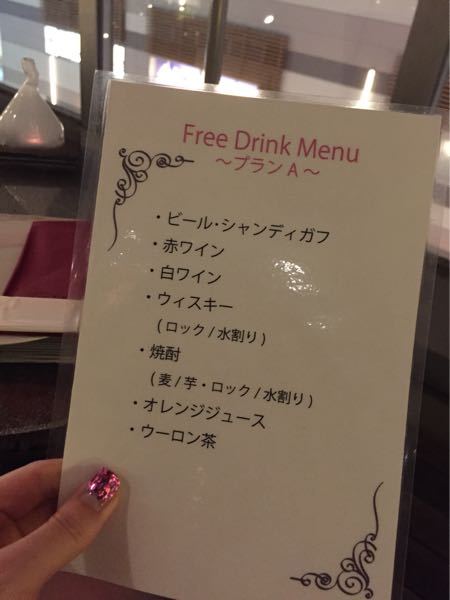 Free Drink Menu
～プランA～
・ビール・シャンディガフ
・赤ワイン
・白ワイン
・ウィスキー
(ロック/水割り)
・焼酎
(麦/芋・ロック/水割り)
・オレンジジュース
・ウーロン茶